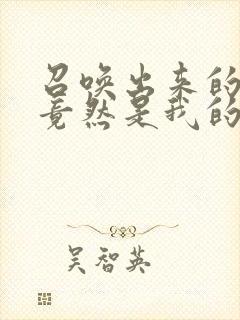 召唤出来的
竟然是我的
吴智英